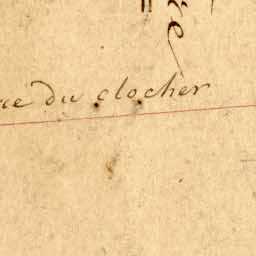 ue du clocher